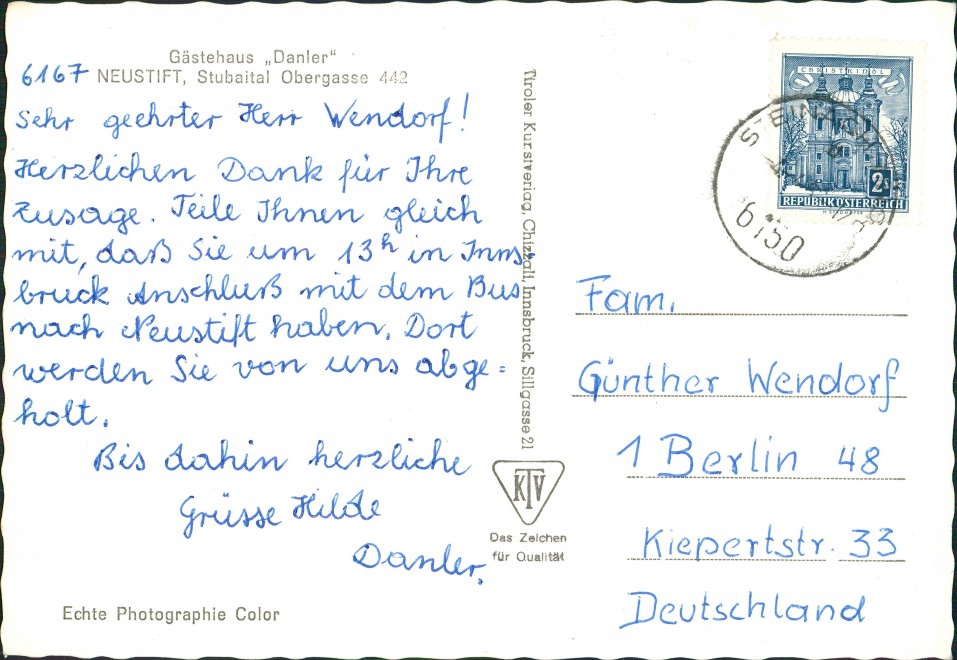 Gästehaus „Danler“
6167 NEUSTIFT, Stubaital Obergasse 442
Sehr geehrter Herr Wendorf!
Herzlichen Dank für Ihre
Zusage. Teile Ihnen gleich
mit, daß Sie um 13h in Inns-
bruck Anschluß mit dem Bus
nach Neustift haben. Dort
werden Sie von uns abge=
holt.
Bis dahin herzliche
Grüsse Hilde
Danler.
Echte Photographie Color
Tiroler Kunstverlag, Chizzali, Innsbruck, Sillgasse 21
KTV
Das Zeichen
für Qualität
CHRISTKINDL
2s
REPUBLIK ÖSTERREICH
STEINACH
6150
Fam.
Günther Wendorf
1 Berlin 48
Kiepertstr. 33
Deutschland